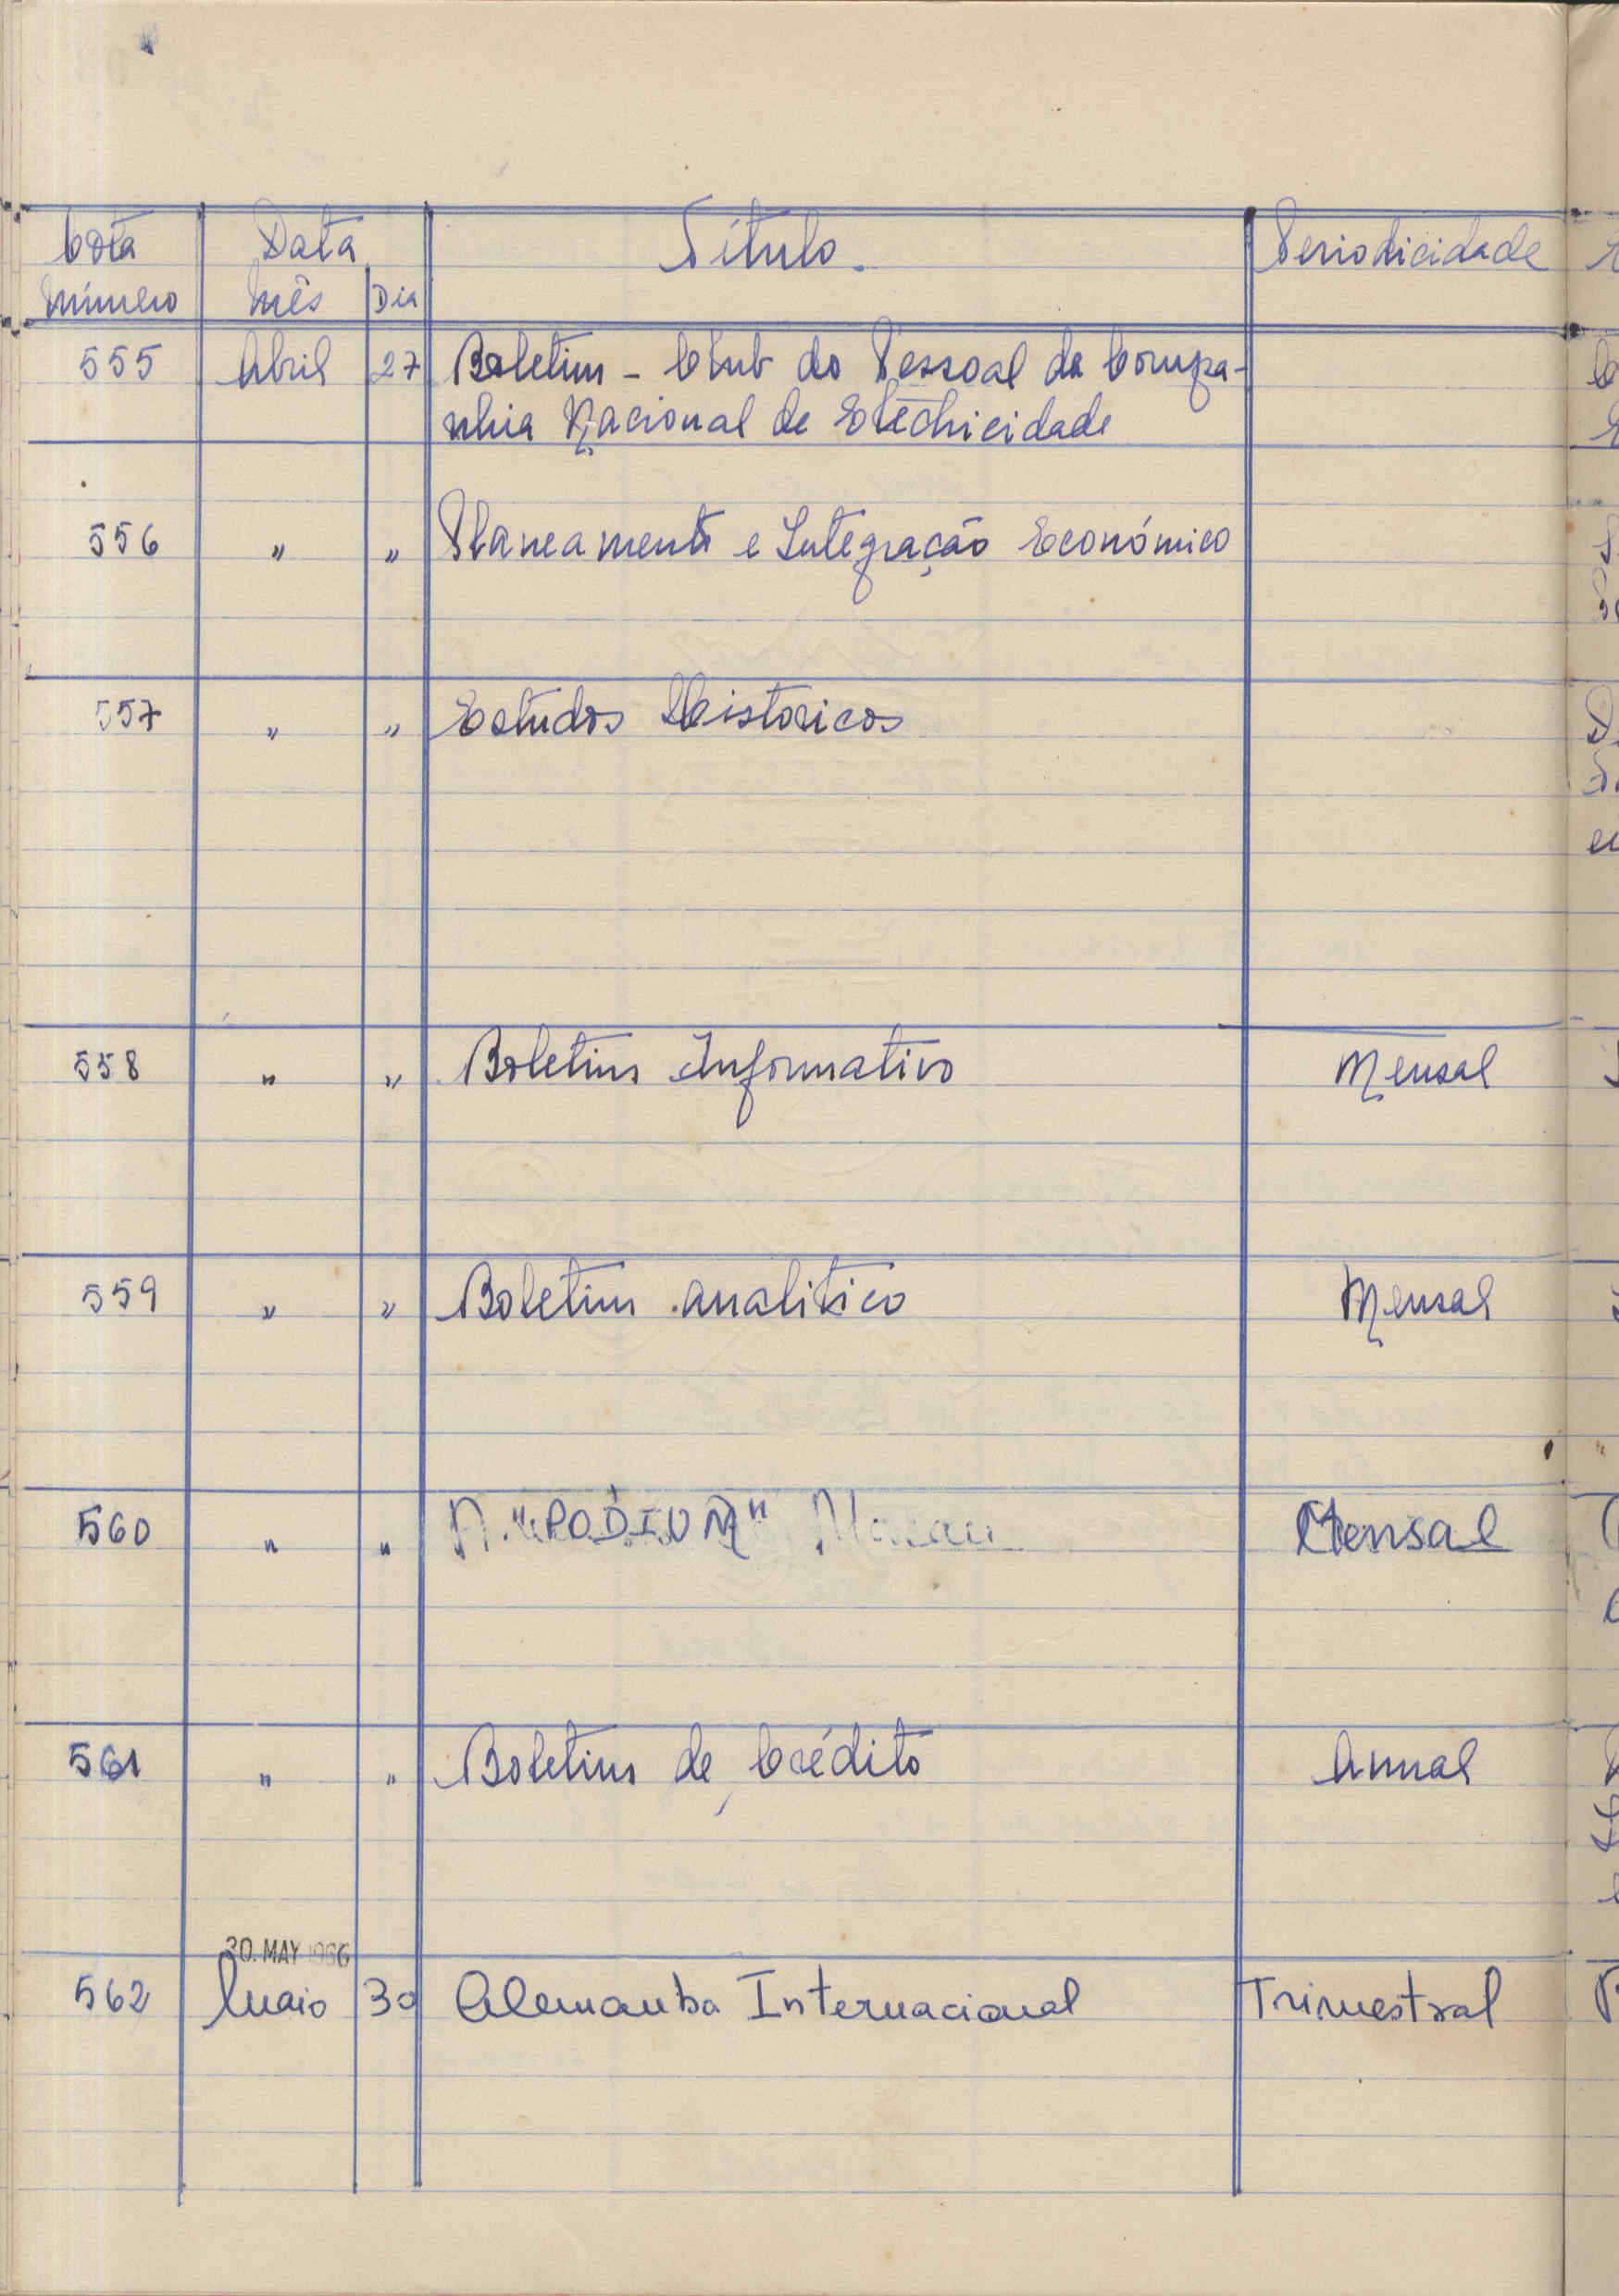 Cota Data Título. Periodicidade
Número Mês Dia
555 Abril 27 Boletim - Club do Pessoal da Compa-
nhia Nacional de Electricidade
556 " " Planeamento e Integração Económico
557 " " Estudos Historicos
558 " " Boletim Informativo Mensal
559 " " Boletim analitico Mensal
560 " " "PÓDIUM" Mensal
561 " " Boletim de Crédito Anual
30. MAY 1986
562 Maio 30 Alemanha Internacional Trimestral